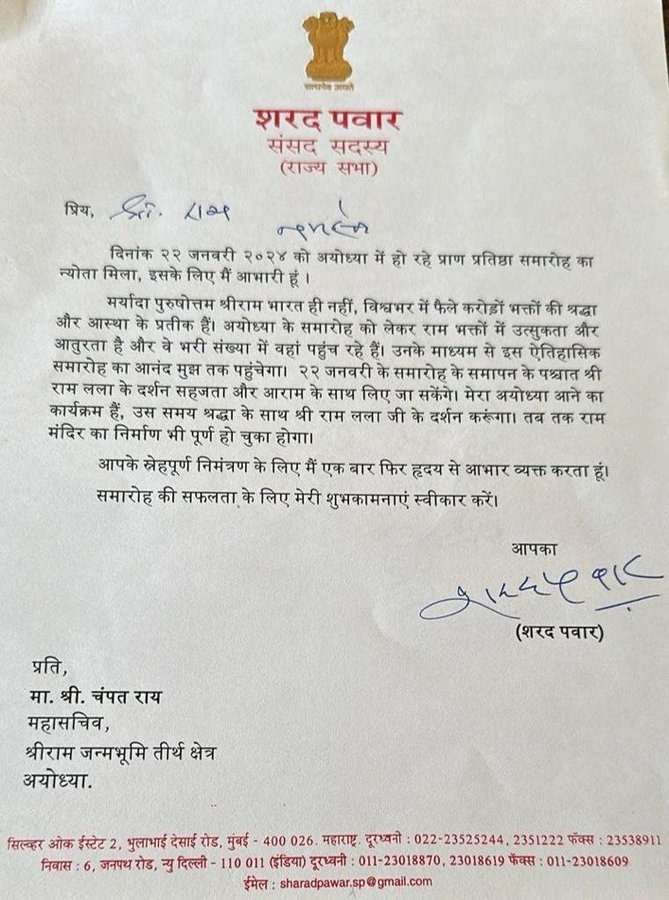 सत्यमेव जयते
शरद पवार
संसद सदस्य
(राज्य सभा)
प्रिय, श्री. राय
नमस्ते
दिनांक २२ जनवरी २०२४ को अयोध्या में हो रहे प्राण प्रतिष्ठा समारोह का
न्योता मिला, इसके लिए मैं आभारी हूं ।
मर्यादा पुरुषोत्तम श्रीराम भारत ही नहीं, विश्वभर में फैले करोड़ों भक्तों की श्रद्धा
और आस्था के प्रतीक हैं। अयोध्या के समारोह को लेकर राम भक्तों में उत्सुकता और
आतुरता है और वे भरी संख्या में वहां पहुंच रहे हैं। उनके माध्यम से इस ऐतिहासिक
समारोह का आनंद मुझ तक पहुंचेगा। २२ जनवरी के समारोह के समापन के पश्चात श्री
राम लला के दर्शन सहजता और आराम के साथ लिए जा सकेंगे। मेरा अयोध्या आने का
कार्यक्रम हैं, उस समय श्रद्धा के साथ श्री राम लला जी के दर्शन करूंगा। तब तक राम
मंदिर का निर्माण भी पूर्ण हो चुका होगा।
आपके स्नेहपूर्ण निमंत्रण के लिए मैं एक बार फिर हृदय से आभार व्यक्त करता हूं।
समारोह की सफलता के लिए मेरी शुभकामनाएं स्वीकार करें।
आपका
शरद पवार
(शरद पवार)
प्रति,
मा. श्री. चंपत राय
महासचिव,
श्रीराम जन्मभूमि तीर्थ क्षेत्र
अयोध्या.
सिल्व्हर ओक ईस्टेट 2, भुलाभाई देसाई रोड, मुंबई - 400 026. महाराष्ट्र. दूरध्वनी : 022-23525244, 2351222 फॅक्स : 23538911
निवास : 6, जनपथ रोड, न्यु दिल्ली - 110 011 (इंडिया) दूरध्वनी : 011-23018870, 23018619 फॅक्स : 011-23018609
ईमेल : sharadpawar.sp@gmail.com